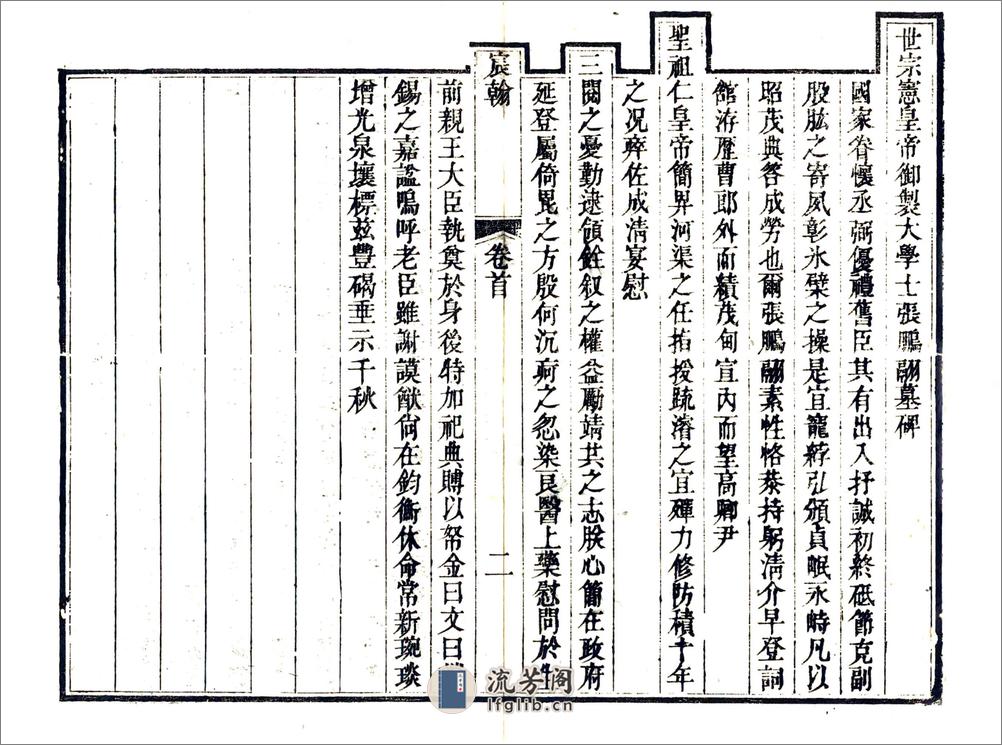 世宗憲皇帝御製大學士張鵬翮墓碑
國家眷懷丞弼優禮舊臣其有出入抒誠初終砥節克副
股肱之寄夙彰氷檗之操是宜寵綍弘頒貞珉永峙凡以
昭茂典答成勞也爾張鵬翮素性恪恭持躬清介早登詞
館洊歷曹郎外而績茂甸宣內而望高卿尹
聖祖仁皇帝簡畀河渠之任指授疏濬之宜殫力修防積十年
之况瘁佐成清宴慰
三閱之憂勤逮領銓叙之權益勵靖共之志朕心簡在政府
延登屬倚毘之方殷何沉疴之忽染良醫上藥慰問於生
宸翰
卷首
二
前親王大臣執奠於身後特加祀典賻以帑金曰文曰
錫之嘉謚嗚呼老臣雖謝謨猷尙在鈞衡休命常新琬琰
增光泉壤標兹豐碣垂示千秋
流芳阁
lfglib.cn